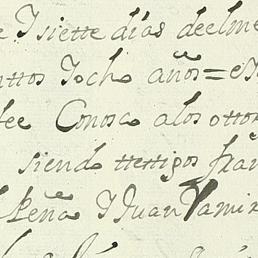 e Y siette días deelme
nttos Y ocho años = es
fee Conosco alos ottor
siendo ttestigos fran
Peña Y Juan Ramir